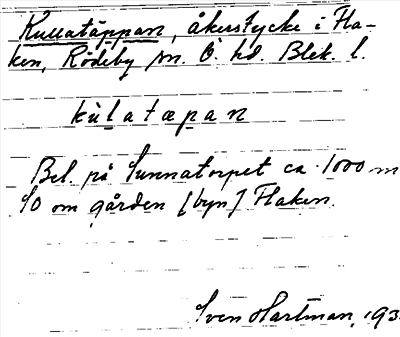 Kullatäppan, åkerstycke i Fla-
ken, Rödeby sn. Ö. hd. Blek. l.
kùlatæpan
Bel. på Sunnatorpet ca 1000 m
SO om gården [byn] Flaken.
Sven Hartman, 193